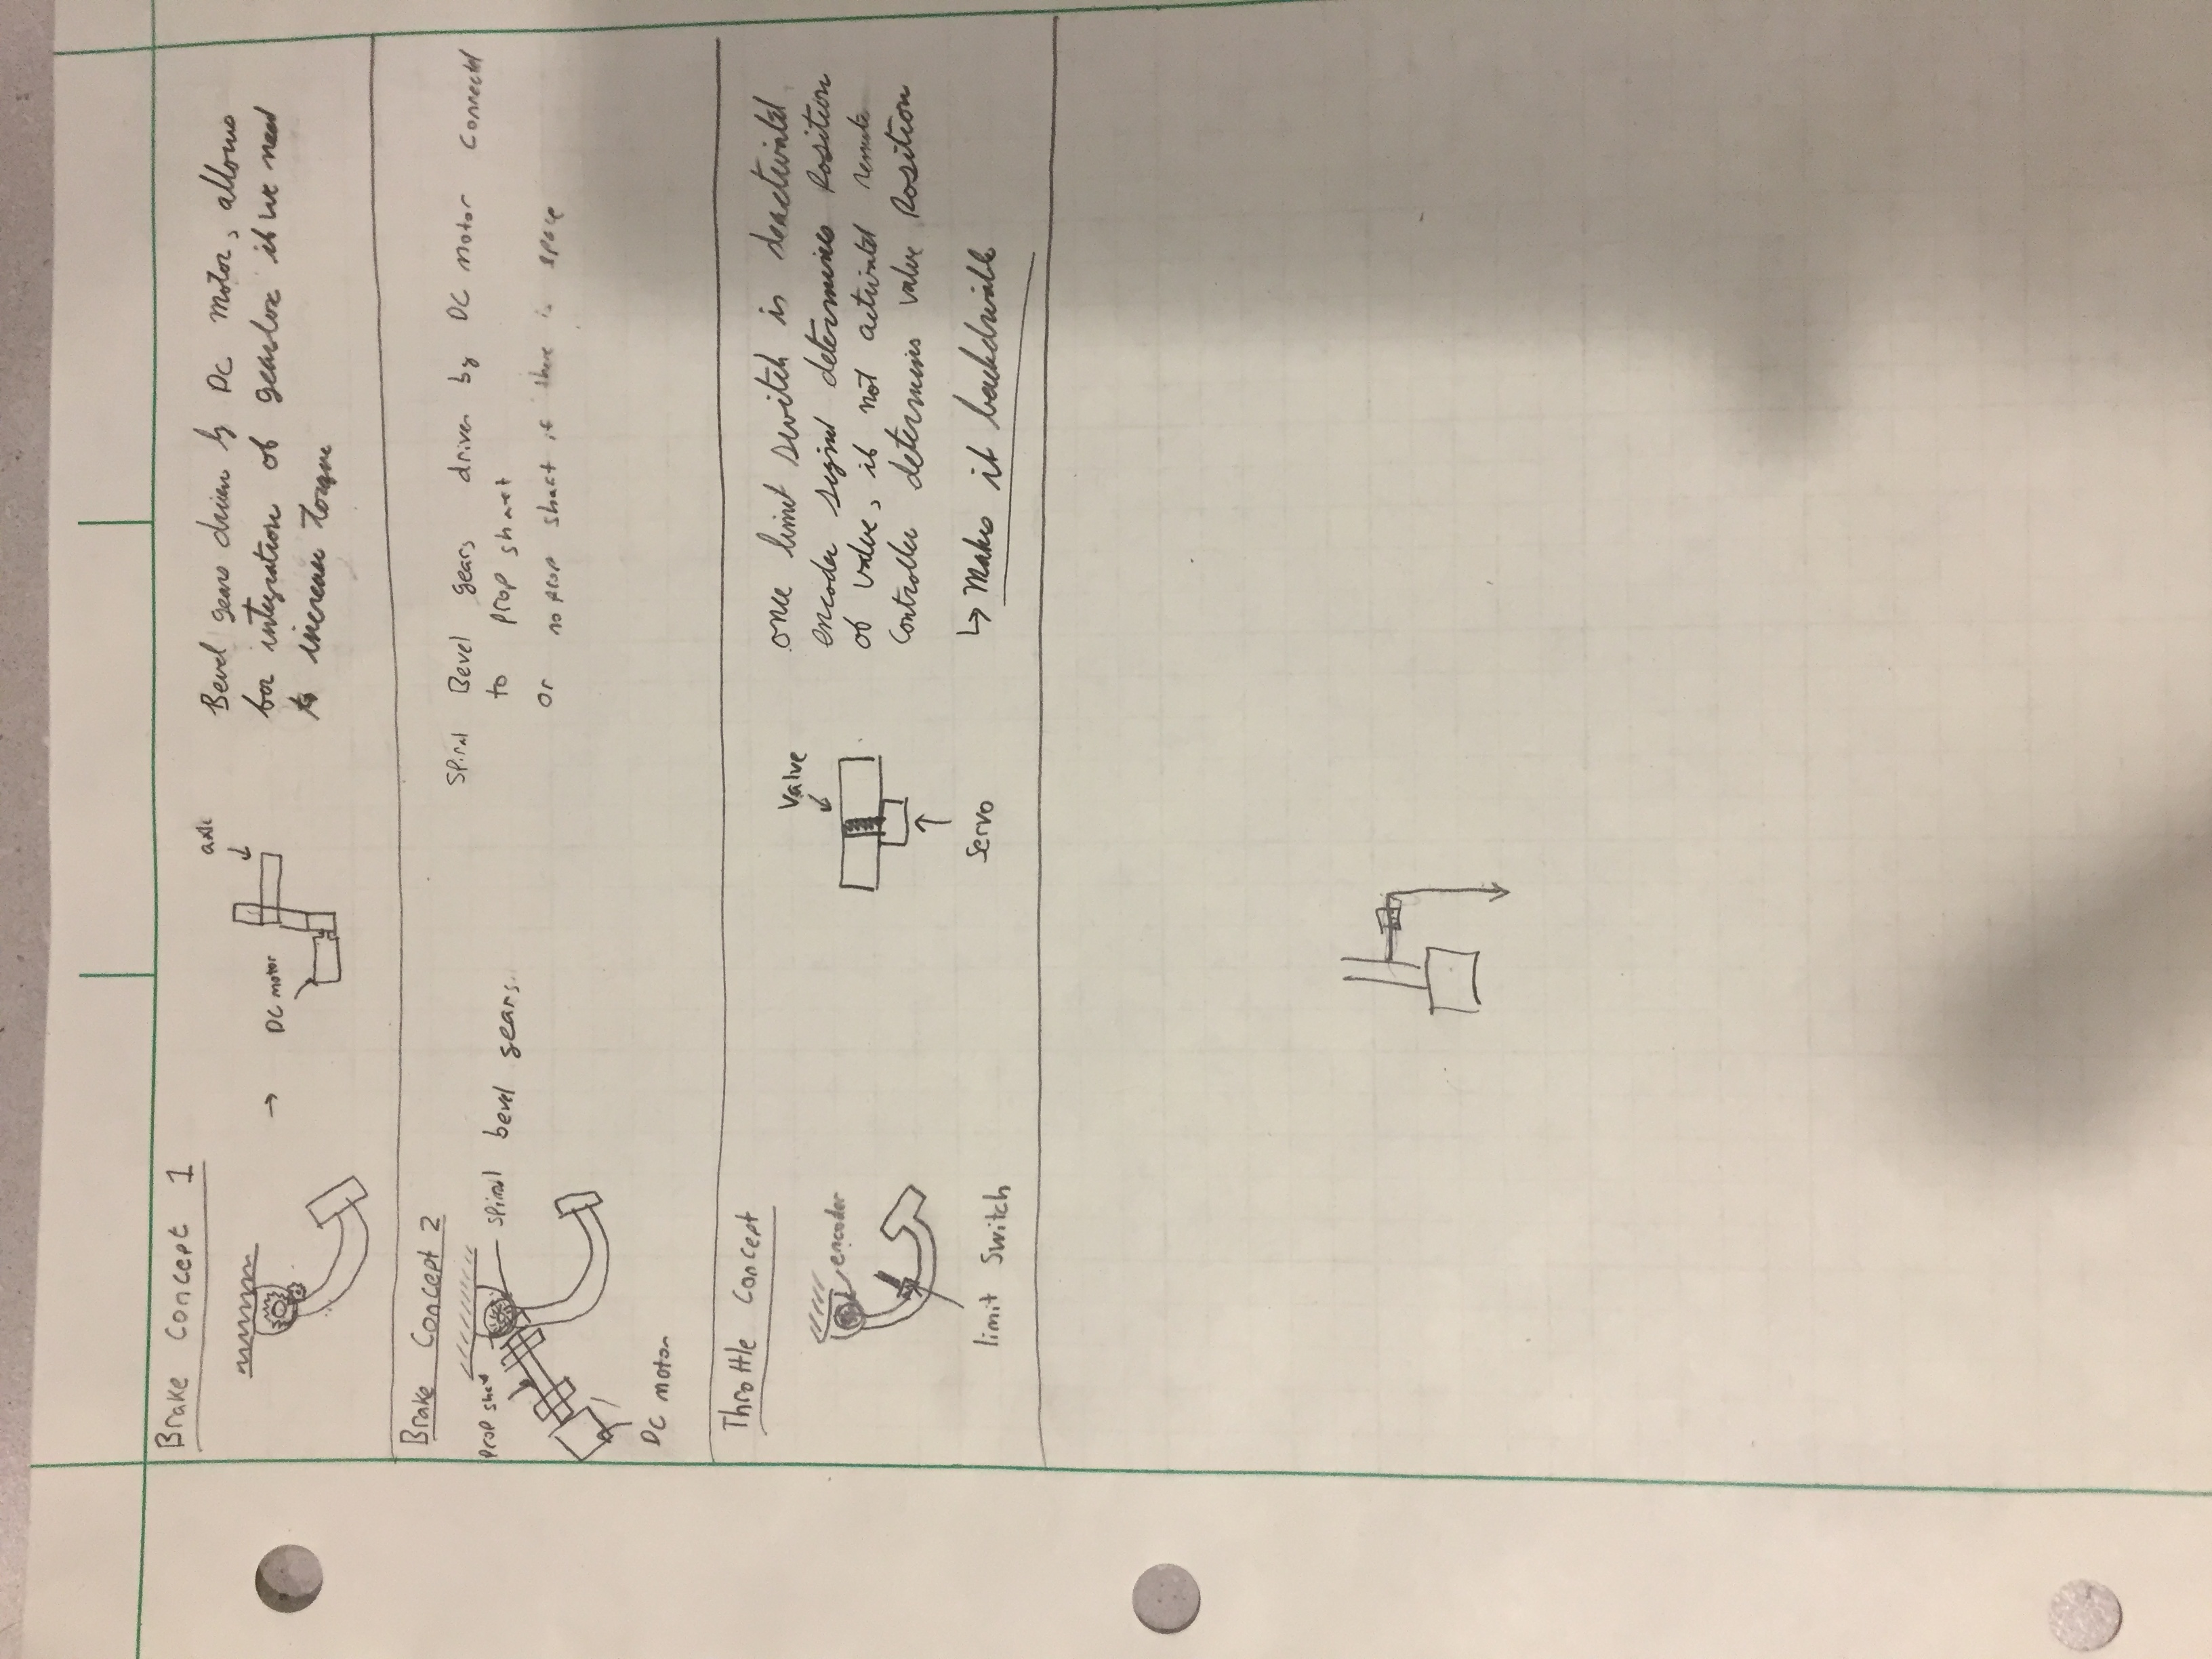 Brake Concept 1
axle
DC motor
Bevel gears driven by DC Motor, allows
for integration of gearbox if we need
to increase torque
Brake Concept 2
Prop shaft
spiral bevel gears
DC motor
Spiral Bevel gears driven by DC motor connected
to prop shaft
or no prop shaft if there is space
Throttle Concept
encoder
limit switch
Valve
Servo
once limit switch is deactivated
encoder signal determines Position
of valve, if not activated remote
controller determins valve Position
↳ Makes it backdrivable